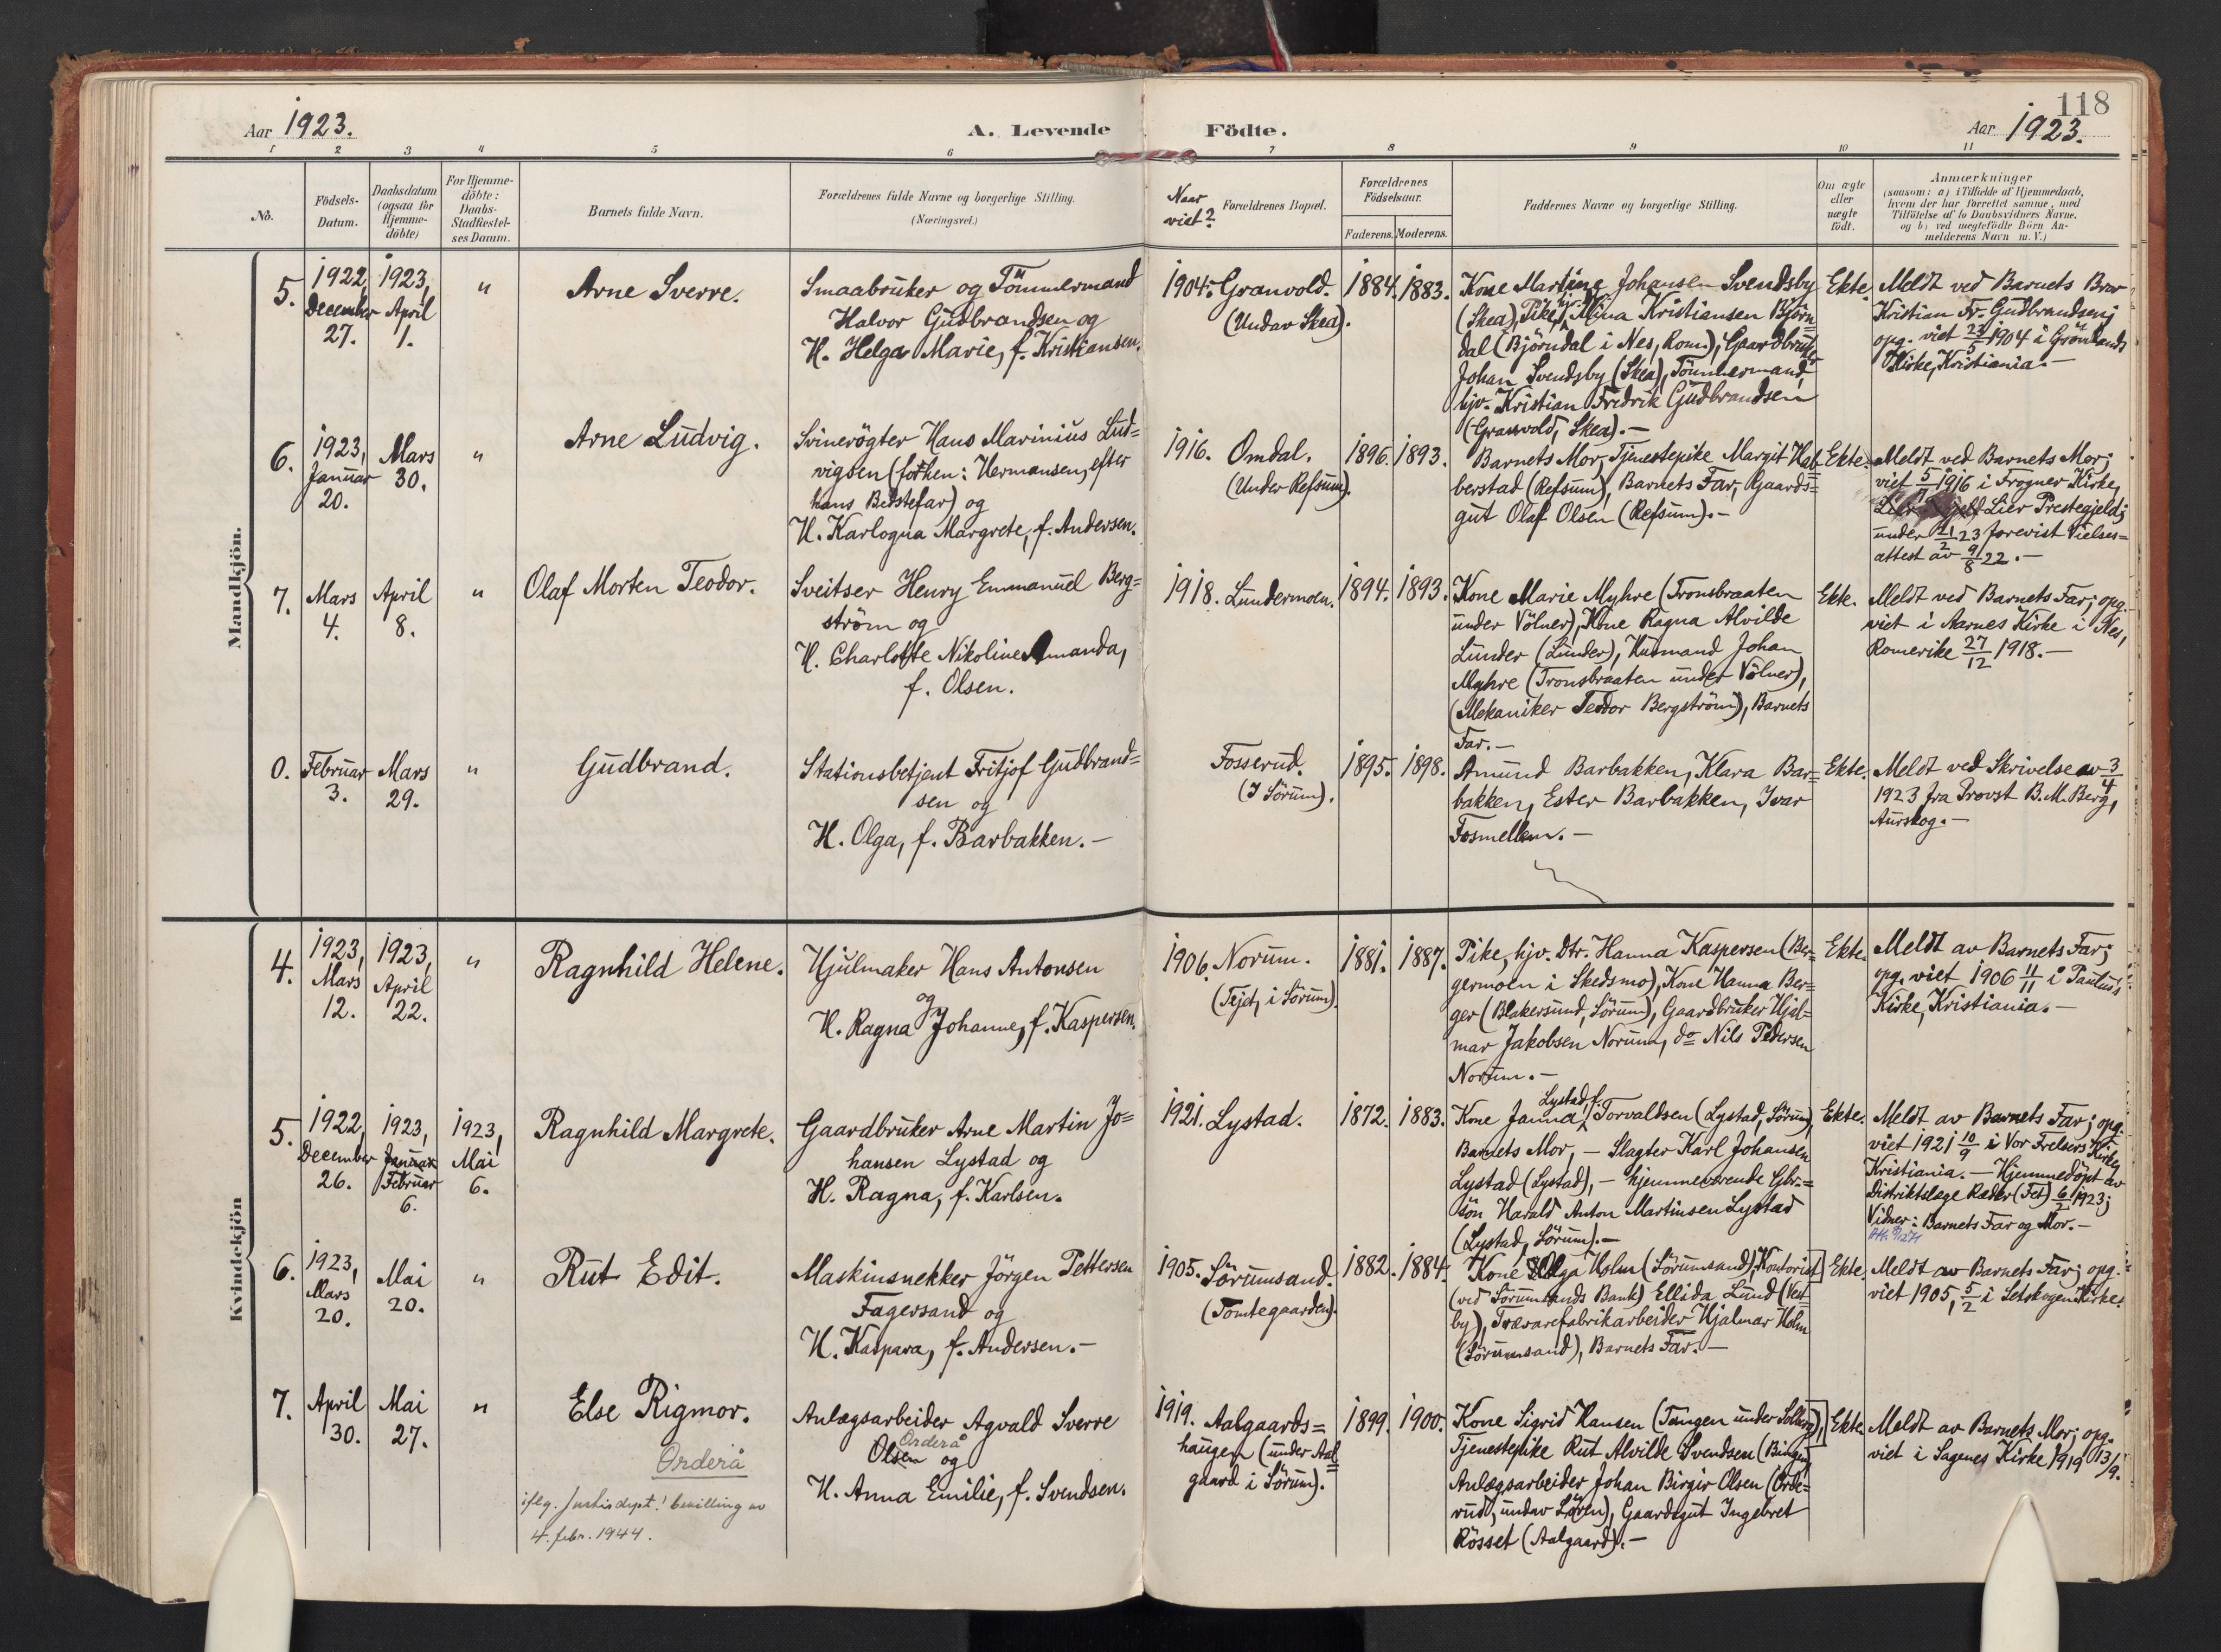 118
Aar 1923.
A. Levende Födte.
Aar 1923.
1 2 3 4 5 6 7 8 9 10 11
No.
Födsels-
Datum.
Daabsdatum
(ogsaa for
Hjemme-
döbte)
For Hjemme-
döbte:
Daabs-
Stadfæstel-
ses Datum.
Barnets fulde Navn.
Forældrenes fulde Navne og borgerlige Stilling.
(Næringsvei.)
Naar
viet?
Forældrenes Bopæl.
Forældrenes
Födselsaar.
Faderens. Moderens.
Faddernes Navne og borgerlige Stilling.
Om ægte
eller
uægte
födt.
Anmærkninger
(saasom: a) i Tilfælde af Hjemmedaab,
hvem der har forrettet samme, med
Tilföielse af to Daabsvidners Navne.
og b) ved uegtefödte Börn An-
melderens Navn m. V.)
Mandkjön.
5.
1922,
December
27.
1923,
April
1.
"
Arne Sverre.
Smaabruker og Tömmermand
Halvor Gudbrandsen og
H. Helga Marie, f. Kristiansen.
1904.
Granvold.
(Undav Skea).
1884.
1883.
Kone Martine Johansen Svendsby
(Skea), Pike, hjv. Mina Kristiansen Björn=
dal (Björndal i Nes, Rom.), Gaardbruker
Johan Svendsby (Skea), Tömmermand,
hjv. Kristian Fredrik Gudbrandsen
(Granvold, Skea).-
Ekte.
Meldt ved Barnets Bror
Kristian Fr. Gudbrandsen;
opg. viet 22/5 1904 i Grönlands
Kirke, Kristiania.-
6.
1923,
Januar
20.
Mars
30.
"
Arne Ludvig.
Svinerögter Hans Marinius Lud=
vigsen (forhen: Hermansen, efter
hans Bedstefar) og
H. Karlogna Margrete, f. Andersen.
1916.
Omdal.
(Under Refsum).
1896.
1893.
Barnets Mor, Tjenestepike Margit Hab=
berstad (Refsum), Barnets Far, Gaards=
gut Olaf Olsen (Refsum).-
Ekte.
Meldt ved Barnets Mor;
viet 5/11 1916 i Frogner Kirke,
Lier Prestegjeld;
under 21/2 23 forevist Vielses=
attest av 9/8 22.-
7.
Mars
4.
April
8.
"
Olaf Morten Teodor.
Sveitser Henry Emmanuel Berg=
ström og
H. Charlotte Nikoline Amanda,
f. Olsen.
1918.
Lundermoen.
1894.
1893.
Kone Marie Myhre (Tronsbraaten
under Völner), Kone Ragna Alvilde
Lunder (Lunder), Husmand Johan
Myhre (Tronsbraaten under Völner),
(Mekaniker Teodor Bergström), Barnets
Far.-
Ekte.
Meldt ved Barnets Far; opg.
viet i Aarnes Kirke i Nes,
Romerike 27/12 1918.-
0.
Februar
3.
Mars
29.
"
Gudbrand.
Stationsbetjent Fritjof Gudbrand=
sen og
H. Olga, f. Barbakken.-
Fosserud.
(I Sörum).
1895.
1898.
Amund Barbakken, Klara Bar=
bakken, Ester Barbakken, Ivar
Fosmellem.-
Ekte.
Meldt ved Skrivelse av 3/4
1923 fra Provst B. M. Berg,
Aurskog.-
Kvindekjön
4.
1923,
Mars
12.
1923,
April
22.
"
Ragnhild Helene.
Hjulmaker Hans Antonsen
og
H. Ragna Johanne, f. Kaspersen.
1906.
Norum.
(Fejd, i Sörum).
1881.
1887.
Pike, hjv. Dtr. Hanna Kaspersen (Ber=
germoen i Skedsmo), Kone Hanna Ber=
ger (Blakersund, Sörum), Gaardbruker Hjal=
mar Jakobsen Norum, do Nils Pedersen
Norum.-
Ekte.
Meldt av Barnets Far;
opg. viet 1906 11/11 i Paulus's
Kirke, Kristiania.-
5.
1922,
December
26.
1923,
Januar
Februar
6.
1923,
Mai
6.
Ragnhild Margrete.
Gaardbruker Arne Martin Jo=
hansen Lystad og
H. Ragna, f. Karlsen.
1921.
Lystad.
1872.
1883.
Lystad, f.
Kone Janna Torvaldsen (Lystad, Sörum),
Barnets Mor, - Slagter Karl Johansen
Lystad (Lystad), - hjemmeværende Gbr.=
sön Harald Anton Martinsen Lystad
(Lystad, Sörum).-
Ekte.
Meldt av Barnets Far; opg.
viet 1921 10/9 i Vor Frelsers Kirke,
Kristiania.- Hjemmedöpt av
Distriktslæge Ræder (Fet) 6/2 1923;
Vidner: Barnets Far og Mor.-
6.
1923,
Mars
20.
Mai
20.
"
Rut Edit.
Maskinsnekker Jörgen Pettersen
Fagersand og
H. Kaspara, f. Andersen.-
1905.
Sörumsand.
(Tomtegaarden).
1882.
1884.
Kone Olga Holm (Sörumsand), Kontorist
(ved Sörumsands Bank) Ellida Lund (Vest=
by), Trævarefabrikarbeider Hjalmar Holm
(Sörumsand), Barnets Far.-
Ekte.
Meldt av Barnets Far; opg.
viet 1905, 5/2 i Setskogen Kirke.
7.
April
30.
Mai
27.
"
Else Rigmor.
Orderå
iflg. Justisdept.s bevilling av
4. febr. 1944.
Anlægsarbeider Agvald Sverre
Orderå
Olsen og
H. Anna Emilie, f. Svendsen.
1919.
Aalgaards=
haugen (under Aal=
gaard i Sörum).
1899.
1900.
Kone Sigrid Hansen (Tangen under Solberg),
Tjenestepike Rut Alvilde Svendsen (Bingen),
Anlægsarbeider Johan Birgir Olsen (Orde=
rud, undav Lören), Gaardsgut Ingebret
Rösset (Aalgaard).-
Ekte.
Meldt av Barnets Mor; opg.
viet i Sagenes Kirke 1919 13/9.